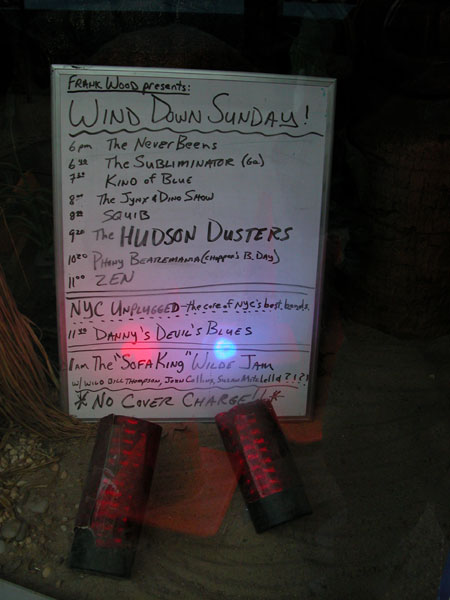 FRANK WOOD presents:
WIND DOWN SUNDAY!
6 pm The NeverBeens
6 30 The SUBLIMINATOR (Ga)
7 20 KIND of BLUE
8 00 The Jynx & Dino Show
SQUIB
9 20 The HUDSON DUSTERS
10 20 PHONY BEATLEMANIA (Chopper's B. Day)
11 00 ZEN
NYC UNPLUGGED - the core of NYC's best bands.
11 30 DANNY'S DEVIL'S BLUES
1 AM The "SOFA KING" WILDE JAM
W/ WILD BILL THOMPSON, John Collins, Susan Mitchell ?!?!
* NO COVER CHARGE!! *